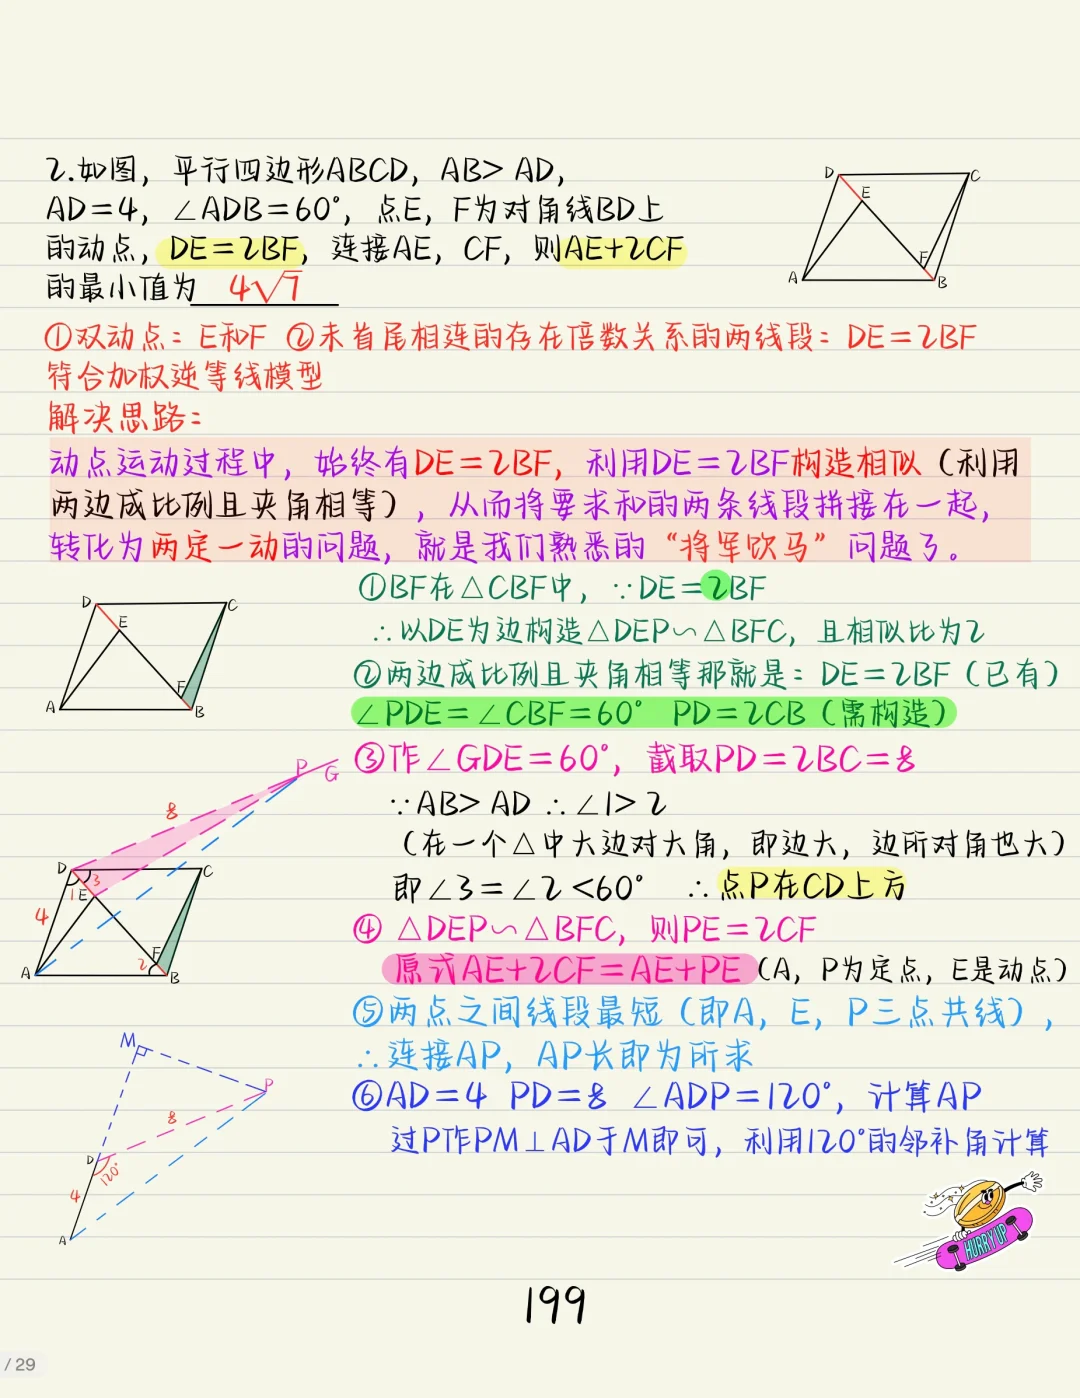 2.如图，平行四边形ABCD，AB＞AD，
AD＝4，∠ADB＝60°，点E，F为对角线BD上
的动点，DE＝2BF，连接AE，CF，则AE+2CF
的最小值为 4√7
D
C
E
F
A
B
①双动点：E和F ②未首尾相连的存在倍数关系的两线段：DE＝2BF
符合加权逆等线模型
解决思路：
动点运动过程中，始终有DE＝2BF，利用DE＝2BF构造相似（利用
两边成比例且夹角相等），从而将要求和的两条线段拼接在一起，
转化为两定一动的问题，就是我们熟悉的“将军饮马”问题了。
①BF在△CBF中，∵DE＝2BF
∴以DE为边构造△DEP∽△BFC，且相似比为2
②两边成比例且夹角相等那就是：DE＝2BF（已有）
∠PDE＝∠CBF＝60° PD＝2CB（需构造）
D
C
E
F
A
B
③作∠GDE＝60°，截取PD＝2BC＝8
∵AB＞AD ∴∠1＞2
（在一个△中大边对大角，即边大，边所对角也大）
即∠3＝∠2＜60° ∴点P在CD上方
④ △DEP∽△BFC，则PE＝2CF
原式AE+2CF＝AE+PE（A，P为定点，E是动点）
P
G
8
D
C
3
1
E
4
F
2
A
B
⑤两点之间线段最短（即A，E，P三点共线），
∴连接AP，AP长即为所求
⑥AD＝4 PD＝8 ∠ADP＝120°，计算AP
过P作PM⊥AD于M即可，利用120°的邻补角计算
M
P
8
D
120°
4
A
HURRY UP
199
/ 29